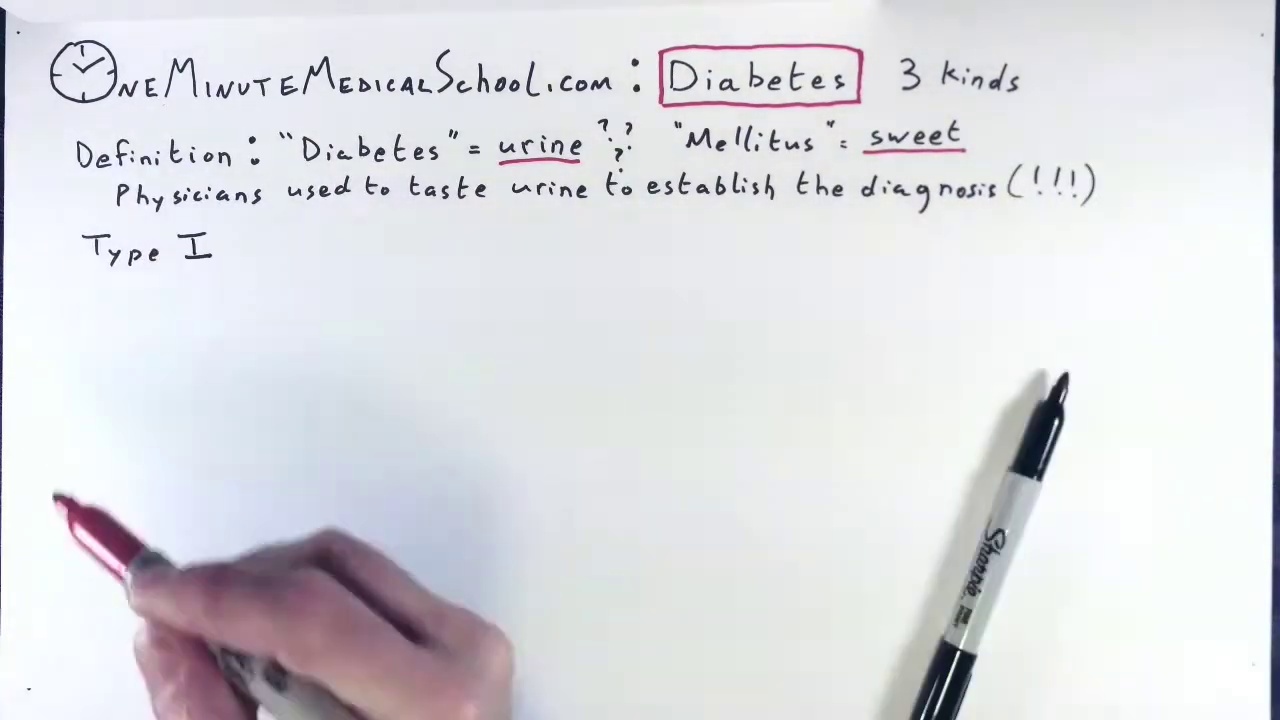 OneMinuteMedicalSchool.com : Diabetes 3 kinds
Definition : "Diabetes" = urine ??? "Mellitus" = sweet
Physicians used to taste urine to establish the diagnosis (!!!)
Type I
Sharpie